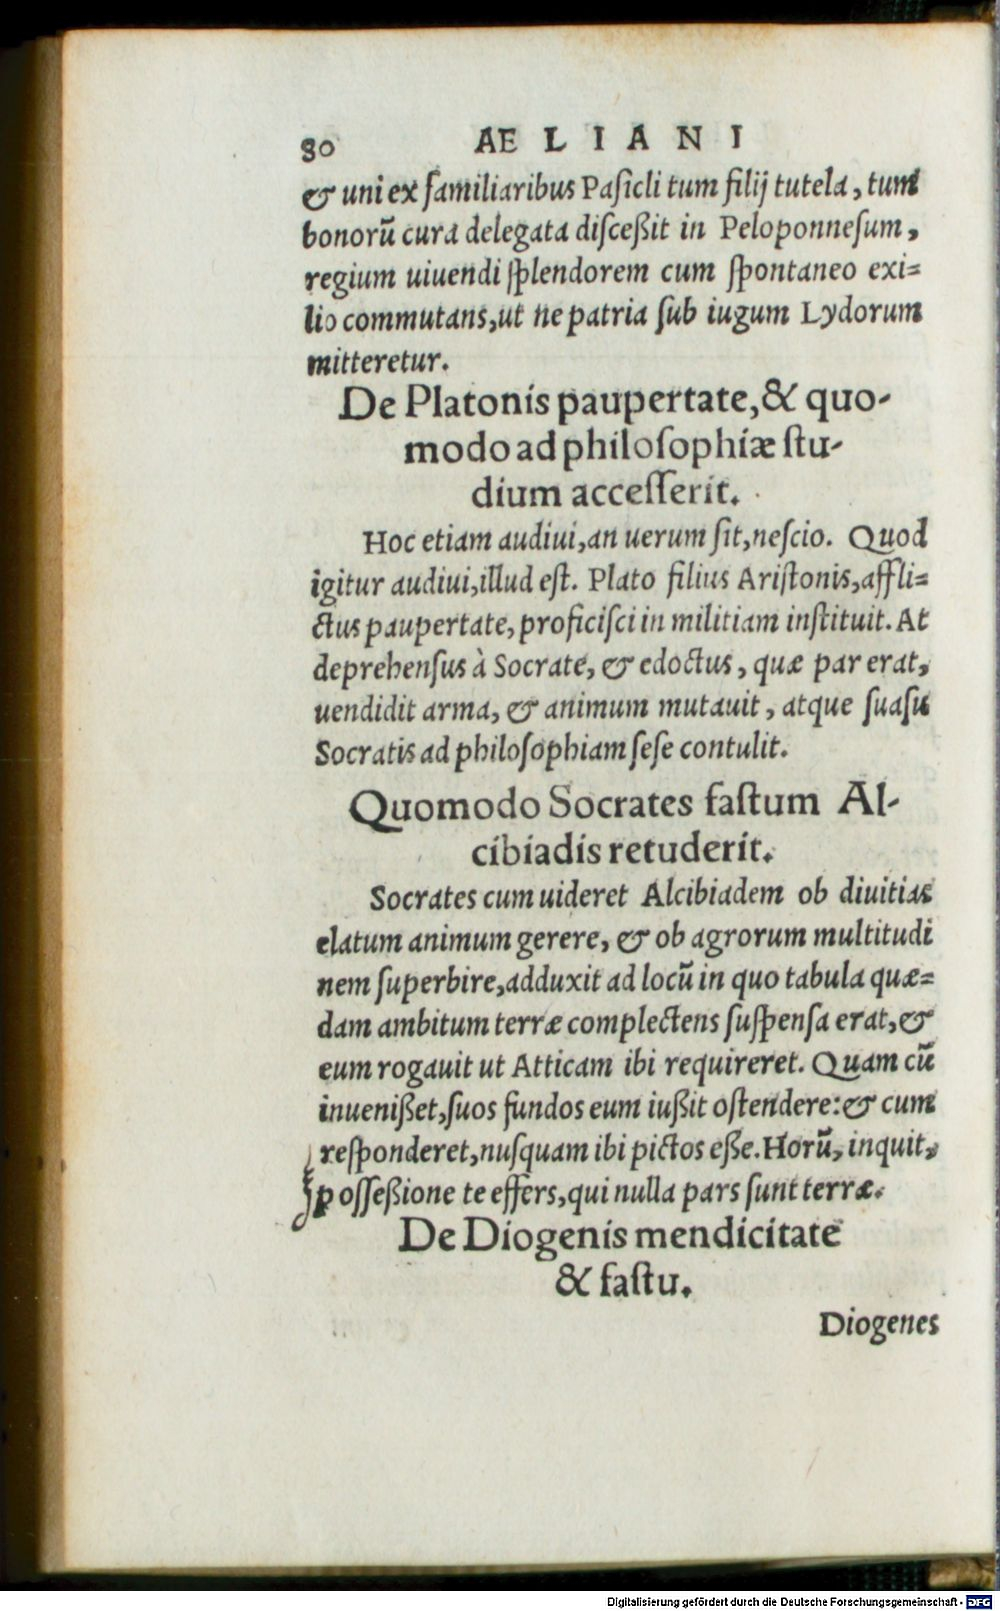 80 AELIANI
& uni ex familiaribus Paſicli tum filij tutela, tum
bonorũ cura delegata diſceßit in Peloponneſum,
regium uiuendi ſplendorem cum ſpontaneo exi=
lio commutans, ut ne patria ſub iugum Lydorum
mitteretur.
De Platonis paupertate, & quo-
modo ad philoſophiæ ſtu-
dium acceſſerit.
Hoc etiam audiui, an uerum ſit, neſcio. Quod
igitur audiui, illud eſt. Plato filius Ariſtonis, affli=
ctus paupertate, proficiſci in militiam inſtituit. At
deprehenſus à Socrate, & edoctus, quæ par erat,
uendidit arma, & animum mutauit, atque ſuaſu
Socratis ad philoſophiam ſeſe contulit.
Quomodo Socrates faſtum Al-
cibiadis retuderit.
Socrates cum uideret Alcibiadem ob diuitias
elatum animum gerere, & ob agrorum multitudi
nem ſuperbire, adduxit ad locũ in quo tabula quæ=
dam ambitum terræ complectens ſuſpenſa erat, &
eum rogauit ut Atticam ibi requireret. Quam cũ
inueniſſet, ſuos fundos eum iußit oſtendere: & cum
reſponderet, nuſquam ibi pictos eße. Horũ, inquit,
poſſeßione te effers, qui nulla pars ſunt terræ.
De Diogenis mendicitate
& faſtu.
Diogenes
Digitalisierung gefördert durch die Deutsche Forschungsgemeinschaft - DFG